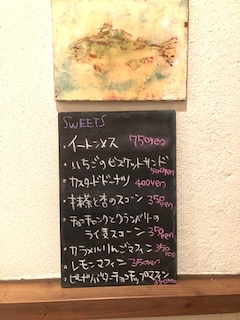 SWEETS
・イートンメス 750yen
・いちごのビスケットサンド 550yen
・カスタードドーナツ 400yen
・抹茶と杏のスコーン 350yen
・チョコチャンクとクランベリーの
ライ麦スコーン 350yen
・カラメルりんごマフィン 350yen
・レモンマフィン 350yen
・ピーナッツバターチョコチップマフィン